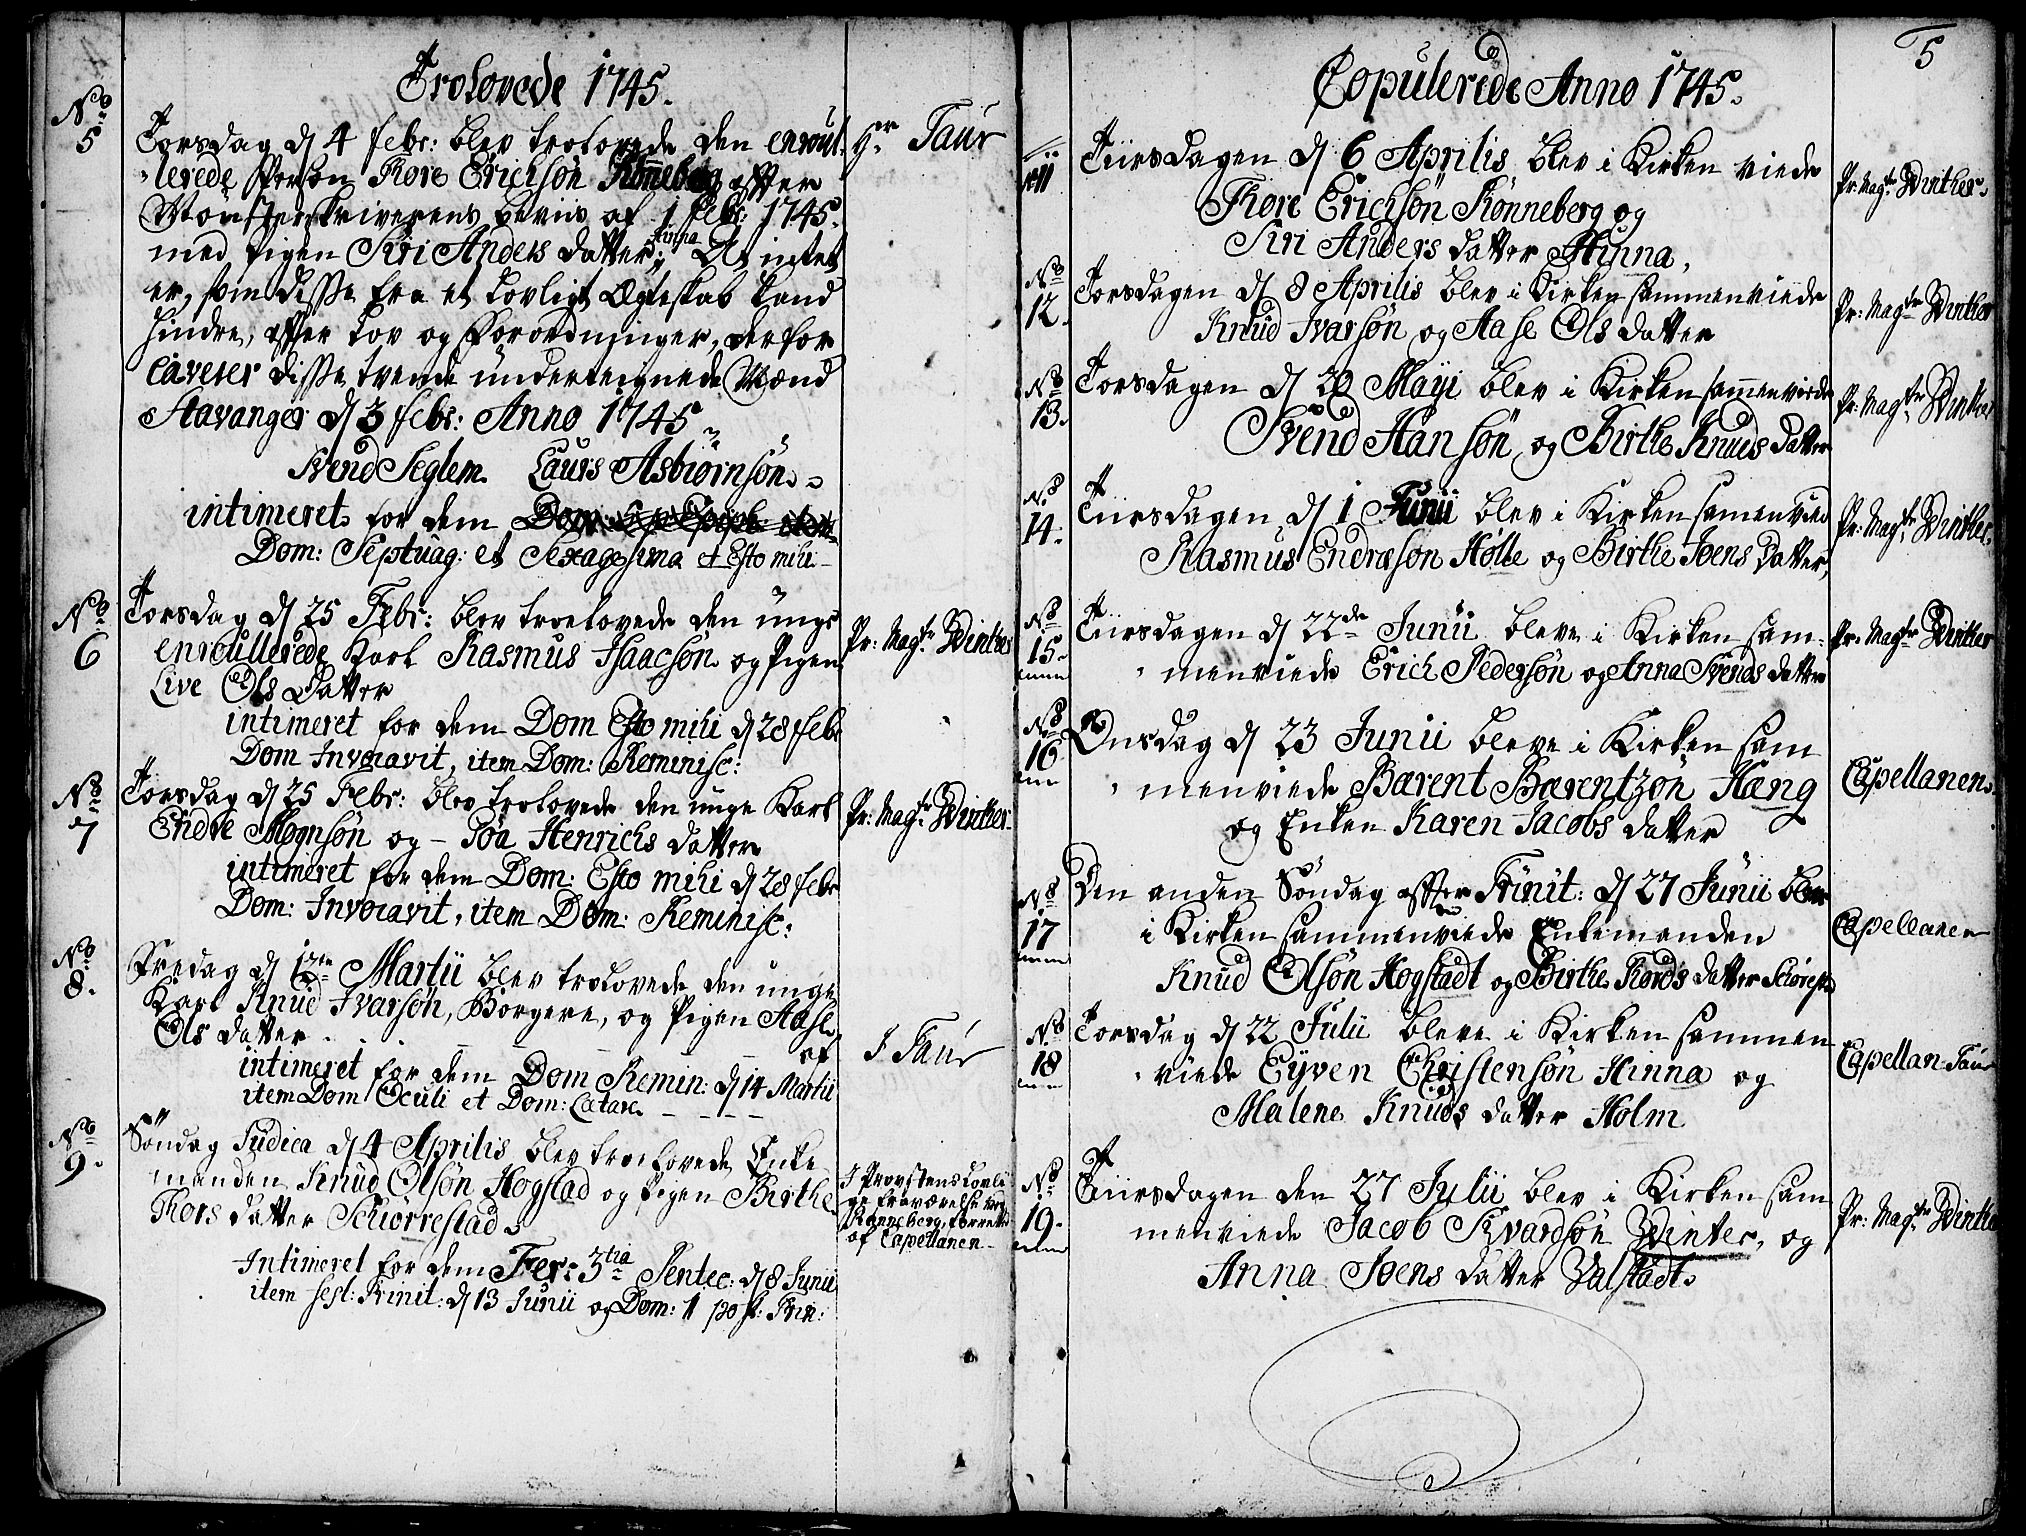 Trolovede 1745.
No. 5
Torsdag d/ 4 febr: blev trolovede den enroul-
lerede Person Tore Erichsön Rønneberg effter
Mönsterskriverens beviis af 1 febr: 1745.
med Pigen Siri Anders datter Hinna, At intet
er, som disse fra et lovligt Ægteskab kand
hindre, effter Lov og Forordninger, derfor
caverer disse tvende underteignede Mænd
Stavanger d/ 3 febr: Anno 1745
Svend Seglem. Laurs Asbiørnsön.
intimeret for dem
Dom: Septuag: et Sexagesima et Esto mihi
Hr. Taur
No. 6
Torsdag d/ 25 Febr: blev troelovede den unge
enroullerede Karl Rasmus Isaacsön og Pigen
Live Ols Datter
intimeret for dem Dom Esto mihi d/ 28 febr
Dom Invocavit, item Dom: Reminisc:
Pr: Magtr Winther
No. 7
Torsdag d/ 25 Febr: blev trolovede den unge Karl
Endre Mognsön og - Söa Henrichs datter
intimeret for dem Dom: Esto mihi d/ 28 febr
Dom: Invocavit, item Dom: Reminisc:
Pr: Magtr Winther
No. 8.
Fredag d/ 12te Martii blev trolovede den unge
Karl Knud Ivarsön, Borgere, og Pigen Aase
Ols datter . . . af
intimeret for dem Dom Remin: d/ 14 Martii
item Dom Oculi et Dom: Lætare
J Taur
No. 9.
Söndag Judica d/ 4 Aprilis blev troelovede Enke-
manden Knud Olsön Hogstad og Pigen Birthe
Tors datter Schiørrestad
Intimeret for dem Fer: 3tia Pentec: d/ 8 Junii
item fest: Trinit: d/ 13 Junii og Dom: 1 post: Trin:
I Provstens lovli-
ge fraværelse
Rønneberg, forretted
af Capellanen
5
Copulerede Anno 1745.
11
Tiirsdagen d/ 6 Aprilis blev i Kirken viede
Tore Erichsön Rønneberg og
Siri Anders datter Hinna,
Pr: Magtr Winther
No. 12.
Torsdagen d/ 8 Aprilis blev i Kirken sammenviede
Knud Ivarsön og Aase Ols datter
Pr: Magtr Winther
No. 13.
Torsdagen d/ 20 Maji blev i Kirken sammenviede
Svend Hansön og Birthe Knuds datter
Pr: Magtr Winther
No. 14.
Tiirsdagen d/ 1 Junii blev i Kirken samenvied
Rasmus Endresön Hølle og Birthe Joens Datter,
Pr: Magtr Winther
No. 15.
Tiirsdagen d/ 22de Junii bleve i Kirken sam-
menviede Erich Pedersön og Anna Svends datter
Pr: Magtr Winther
No. 16
Onsdag d/ 23 Junii bleve i Kirken sam
menviede Barent Barentzön Hæng
og Enken Karen Jacobs datter
Capellanen.
No. 17
Den anden Söndag effter Trinit: d/ 27 Junii blev
i Kirken sammenviede Enkemanden
Knud Olsön Hogstadt og Birthe Tords datter Schörest
Capellanen
No. 18
Torsdag d/ 22 Julii bleve i Kirken sammen
viede Eyven Christensön Hinna og
Malene Knuds datter Holm
Capellan Taur
No. 19.
Tiirsdagen den 27 Julii blev i Kirken sam
menviede Jacob Sivardsön Winter, og
Anna Joens datter Valstadt.
Pr: Magtr Winther